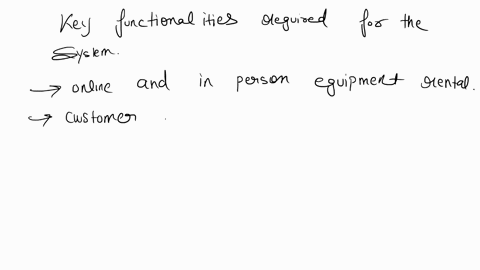 Key functionalities required for the
System.
→ online and in person equipment rental.
→ customer